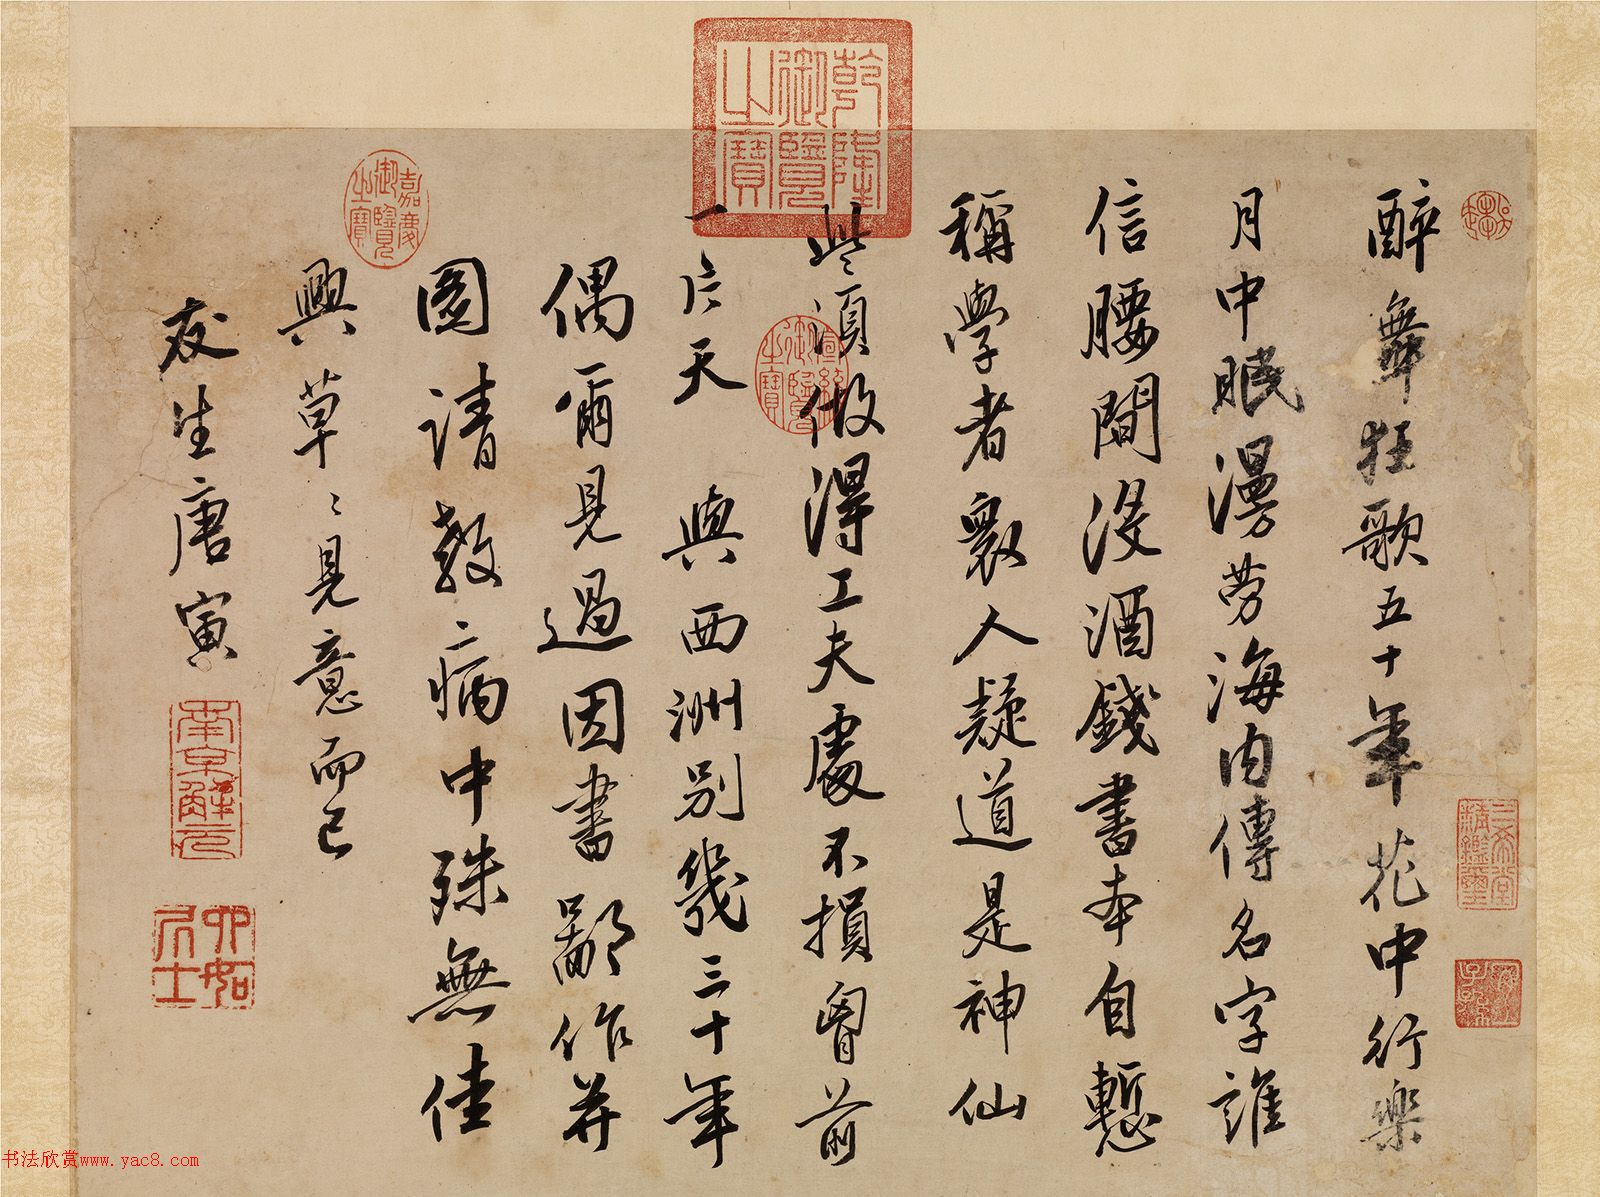 醉舞狂歌五十年花中行樂
月中眠漫勞海內傳名字誰
信腰間沒酒錢書本自慙
稱學者眾人疑道是神仙
些須做得工夫處不損胷前
一片天 與西洲別幾三十年
偶爾見過因書鄙作并
圖請教病中殊無佳
興草〻見意而已
友生唐寅
南京解元
六如居士
乾隆御覽之寶
嘉慶御覽之寶
宣統御覽之寶
三希堂精鑑璽
宜子孫
書法欣赏www.yac8.com